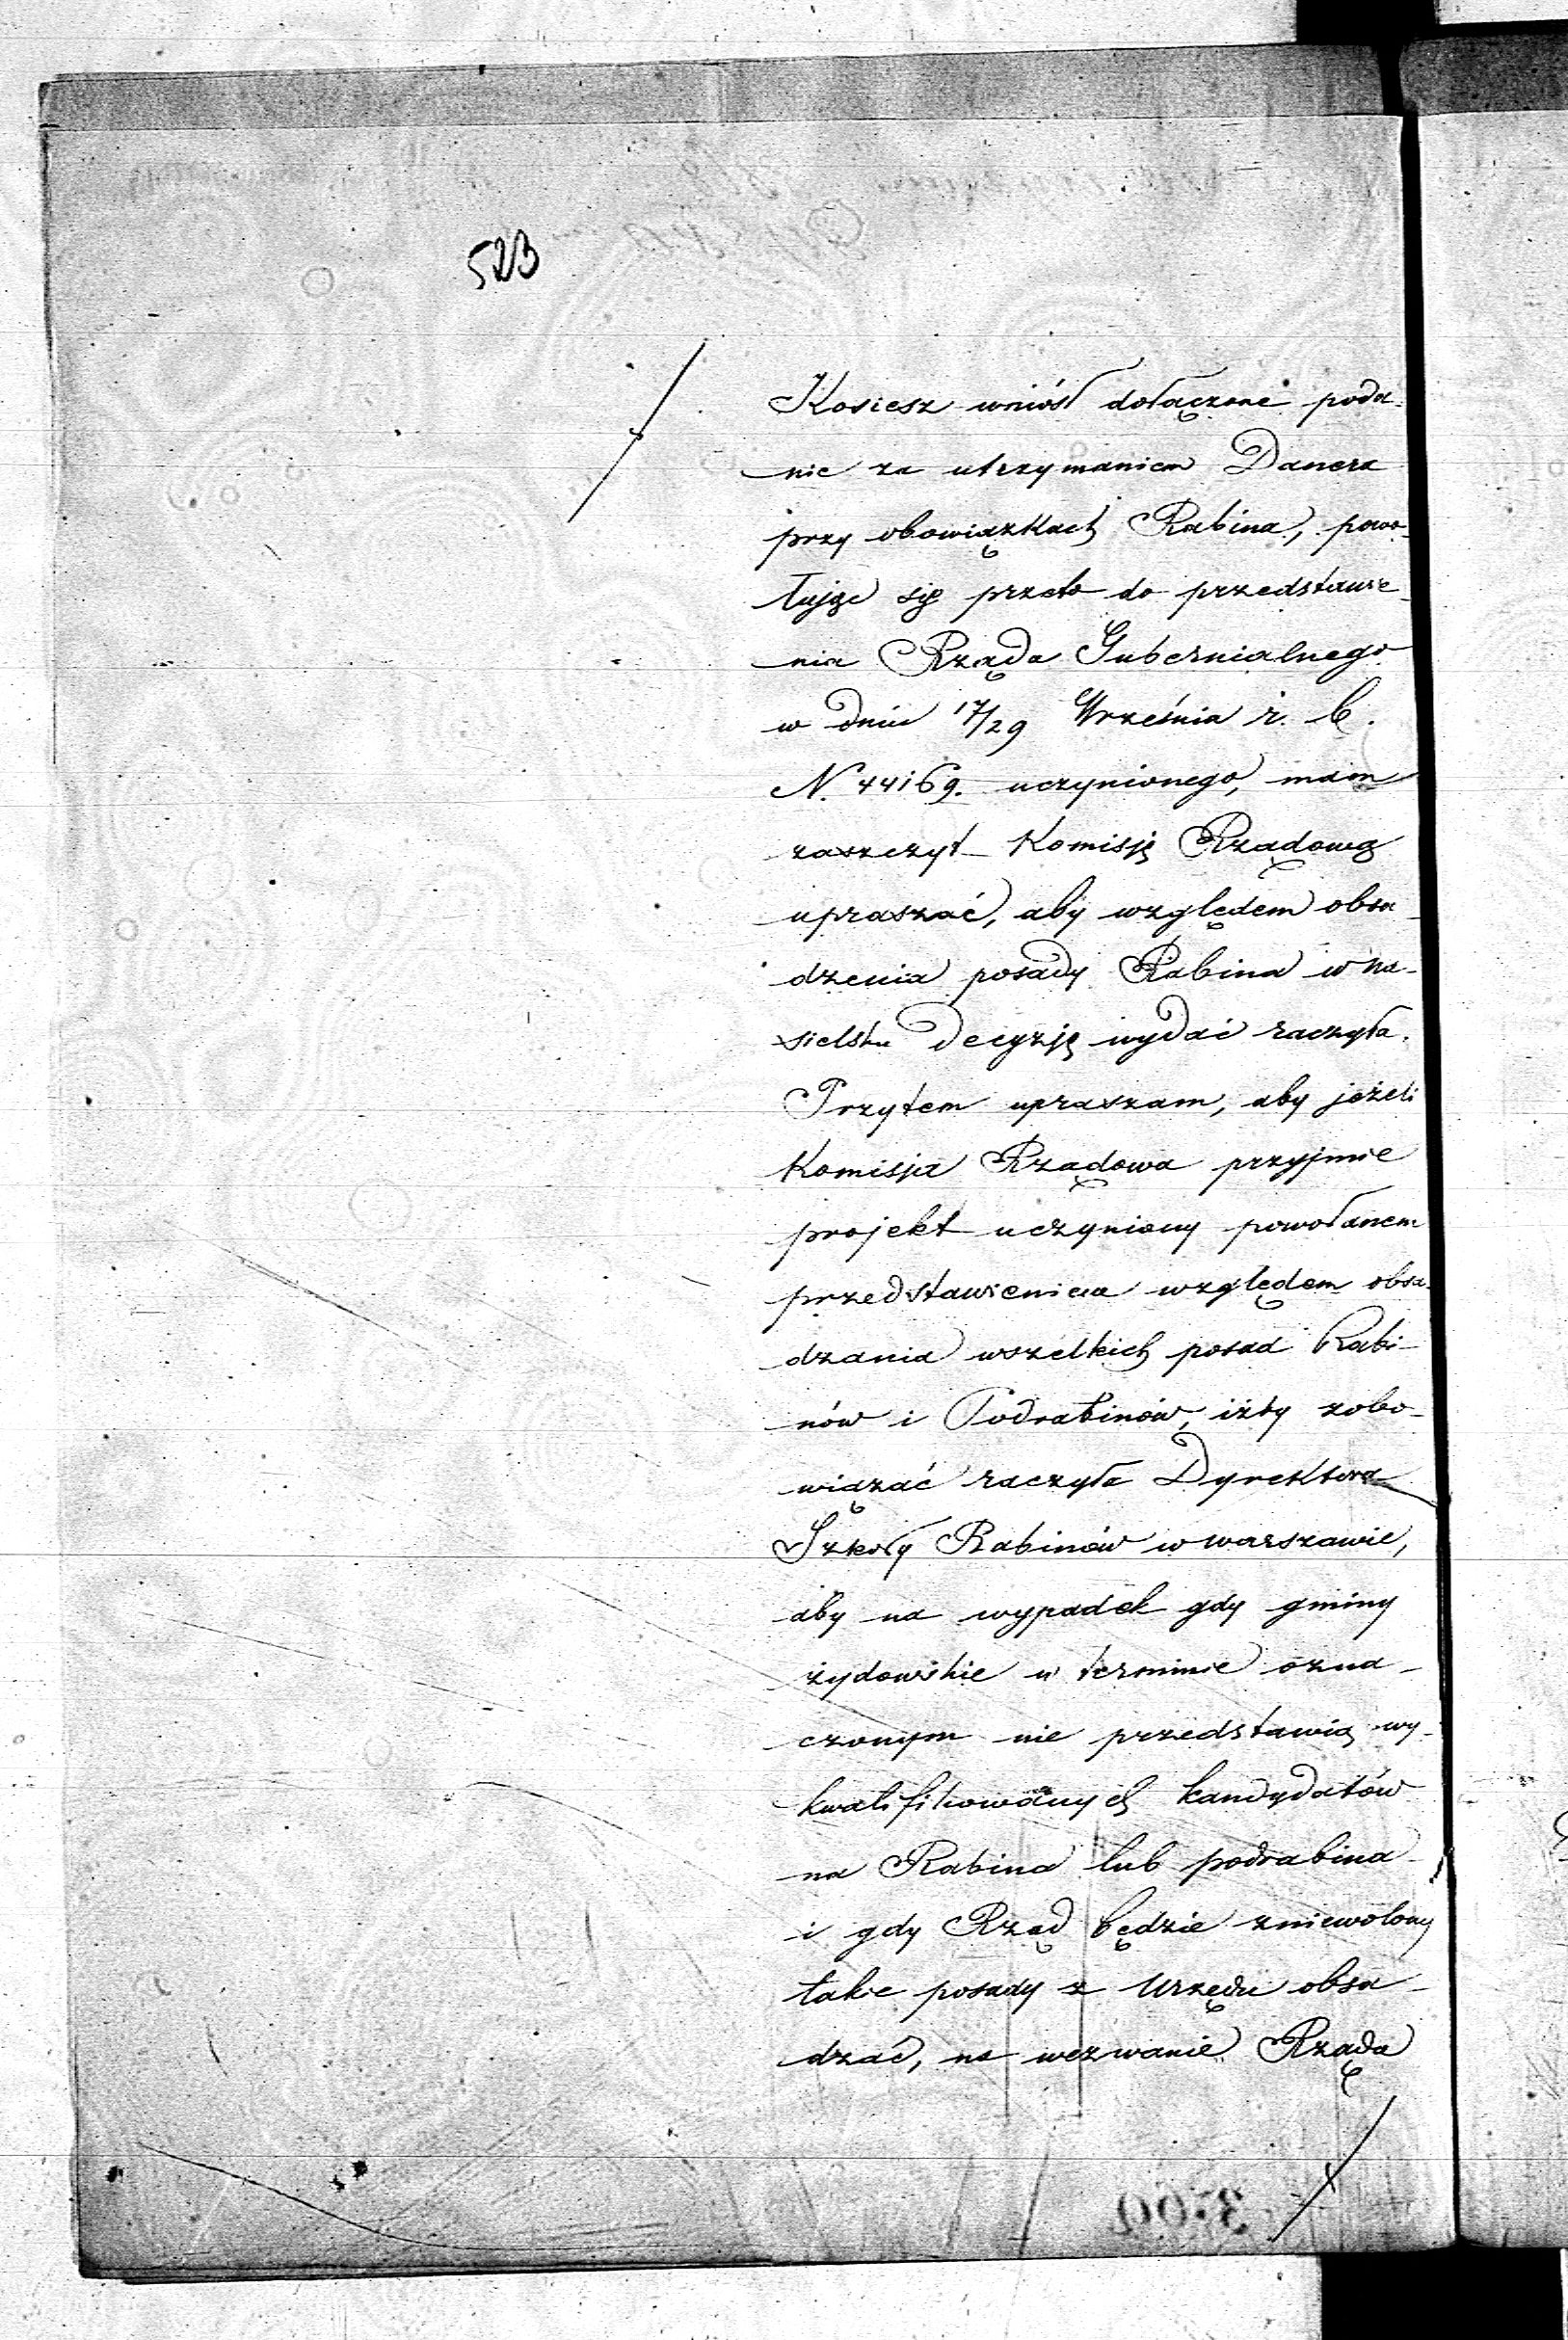 523
Kosiesz wniósł dołączone poda-
nie za utrzymaniem Danera
przy obowiązkach Rabina, powo-
łując się przeto do przedstawie-
nia Rządu Gubernialnego
w dniu 17/29 Września r. b.
N. 44169. uczynionego, mam
zaszczyt Komisję Rządową
upraszać, aby względem obsa-
dzenia posady Rabina w Na-
sielsku decyzję wydać raczyła.
Przytem upraszam, aby jeżeli
Komisja Rządowa przyjmie
projekt uczyniony powołanem
przedstawieniem względem obsa-
dzania wszelkich posad Rabi-
nów i Podrabinów, iżby zobo-
wiązać raczyła Dyrektora
Szkoły Rabinów w Warszawie,
aby na wypadek gdy gminy
żydowskie w terminie ozna-
czonym nie przedstawią wy-
kwalifikowanych kandydatów
na Rabina lub podrabina
i gdy Rząd będzie zniewolony
takie posady z Urzędu obsa-
dzać, na wezwanie Rządu